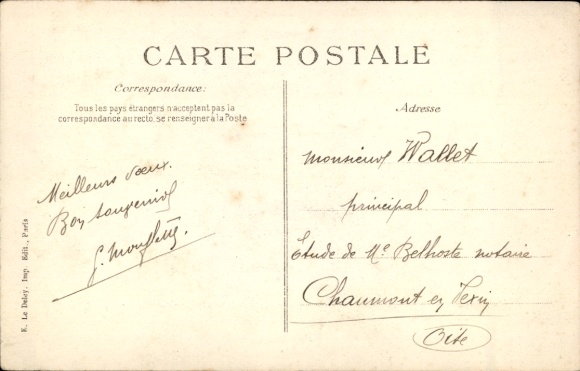 CARTE POSTALE
Correspondance:
Tous les pays étrangers n'acceptent pas la
correspondance au recto, se renseigner à la Poste
Meilleurs vœux.
Bon souvenir
Adresse
Monsieur Wallet
principal
Etude de Me Belhoste notaire
Chaumont en Vexin
Oise
E. Le Deley, Imp. Edit., Paris